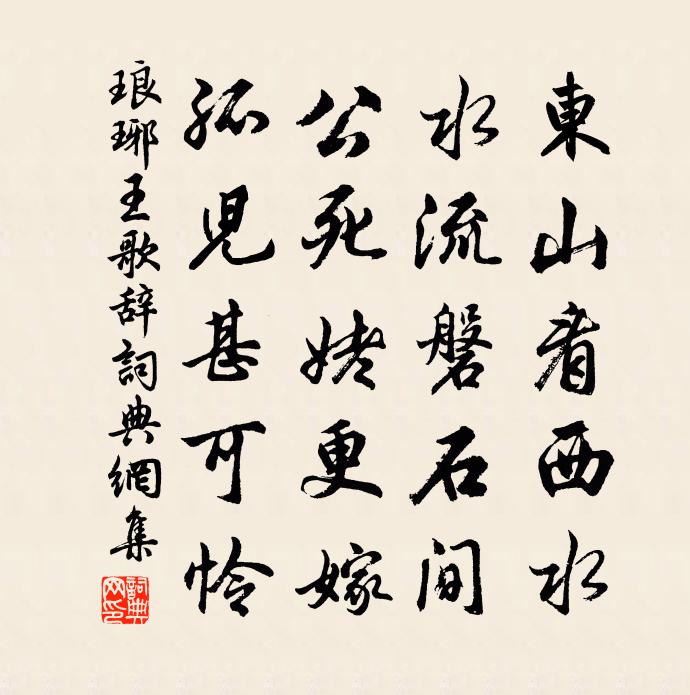 東山看西水
水流磐石間
公死姥更嫁
孤児甚可怜
琅琊王歌辞詞典網集
詞典網印